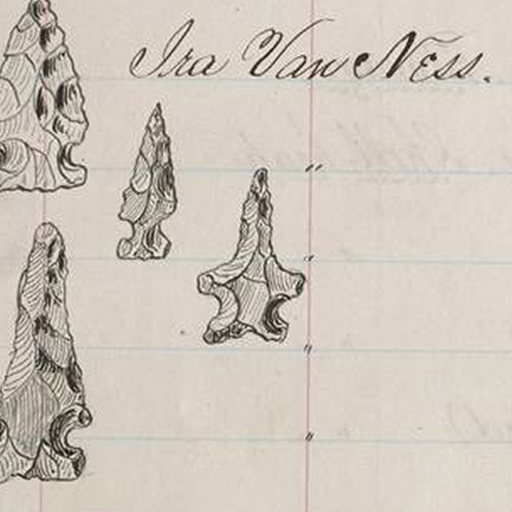 Ira Van Ness.
"
"
"
"